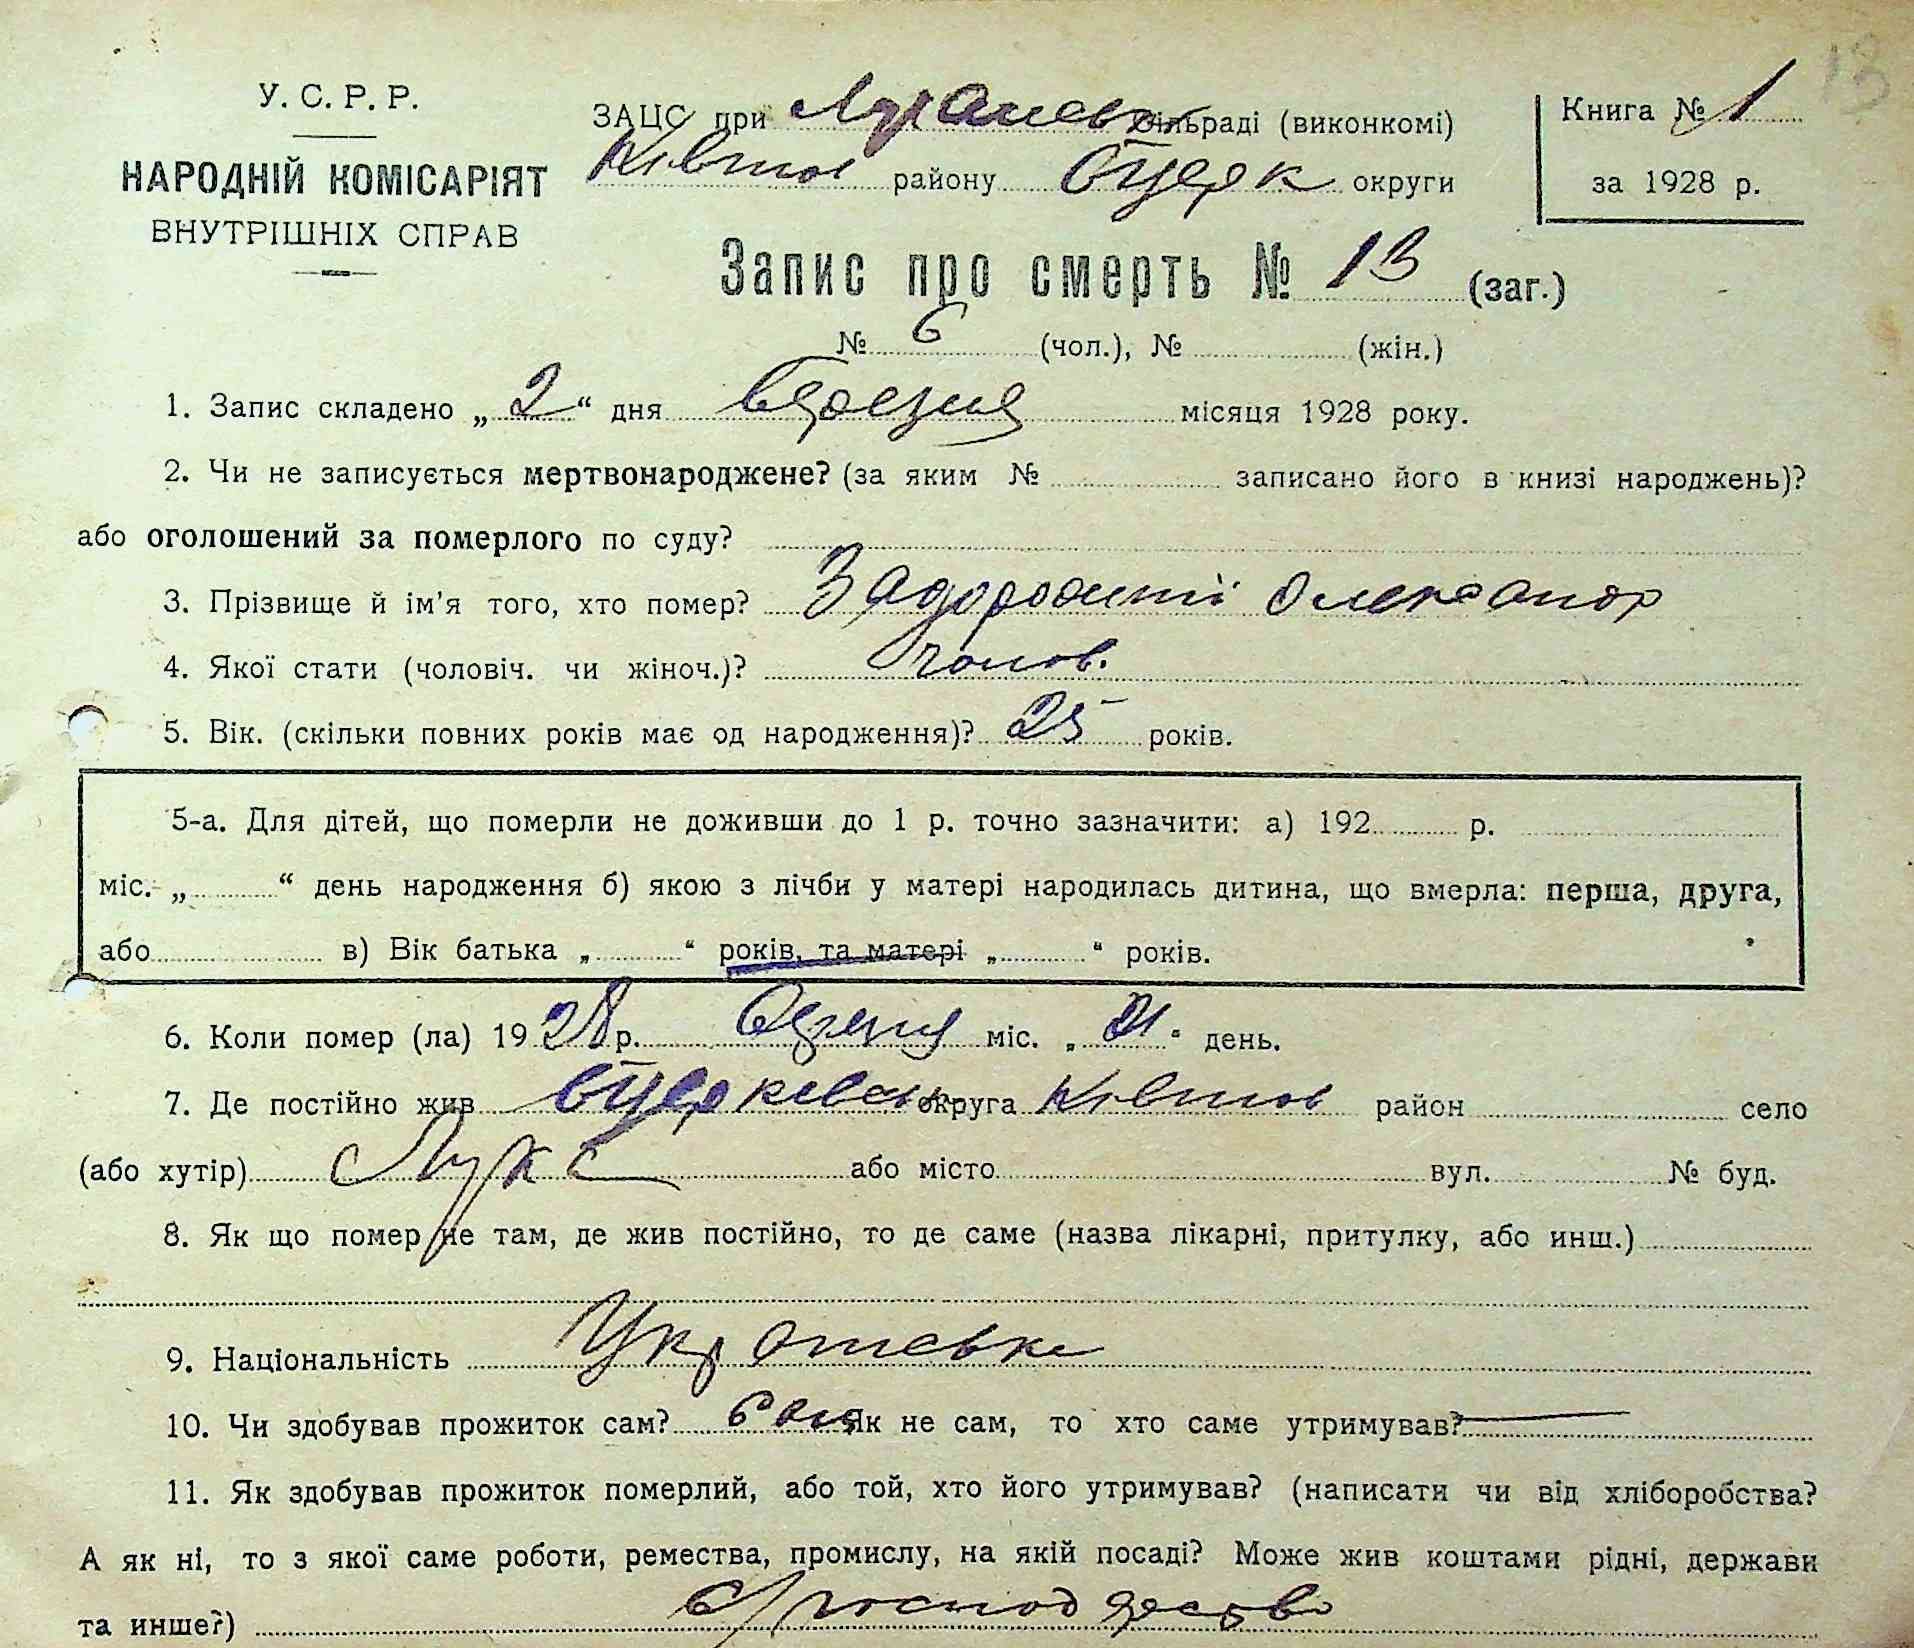 13
У. С. Р. Р.
НАРОДНІЙ КОМІСАРІЯТ
ВНУТРІШНІХ СПРАВ
ЗАЦС при сільраді (виконкомі)
району БЦерк округи
Книга № 1
за 1928 р.
Запис про смерть № 13 (заг.)
№ 6 (чол.), № (жін.)
1. Запис складено „ 2 “ дня березня місяця 1928 року.
2. Чи не записується мертвонароджене? (за яким № записано його в книзі народжень)?
або оголошений за померлого по суду?
3. Прізвище й ім'я того, хто помер? Олександр
4. Якої стати (чоловіч. чи жіноч.)? Чолов.
5. Вік. (скільки повних років має од народження)? 25 років.
5-а. Для дітей, що померли не доживши до 1 р. точно зазначити: а) 192 р.
міс. „ “ день народження б) якою з лічби у матері народилась дитина, що вмерла: перша, друга,
або в) Вік батька „ “ років, та матері „ “ років.
6. Коли помер (ла) 19 28 р. міс. „ “ день.
7. Де постійно жив БЦерківсь округа район село
(або хутір) с Лука або місто вул. № буд.
8. Як що помер не там, де жив постійно, то де саме (назва лікарні, притулку, або инш.)
9. Національність
10. Чи здобував прожиток сам? сам Як не сам, то хто саме утримував?
11. Як здобував прожиток померлий, або той, хто його утримував? (написати чи від хліборобства?
А як ні, то з якої саме роботи, ремества, промислу, на якій посаді? Може жив коштами рідні, держави
та инше?)